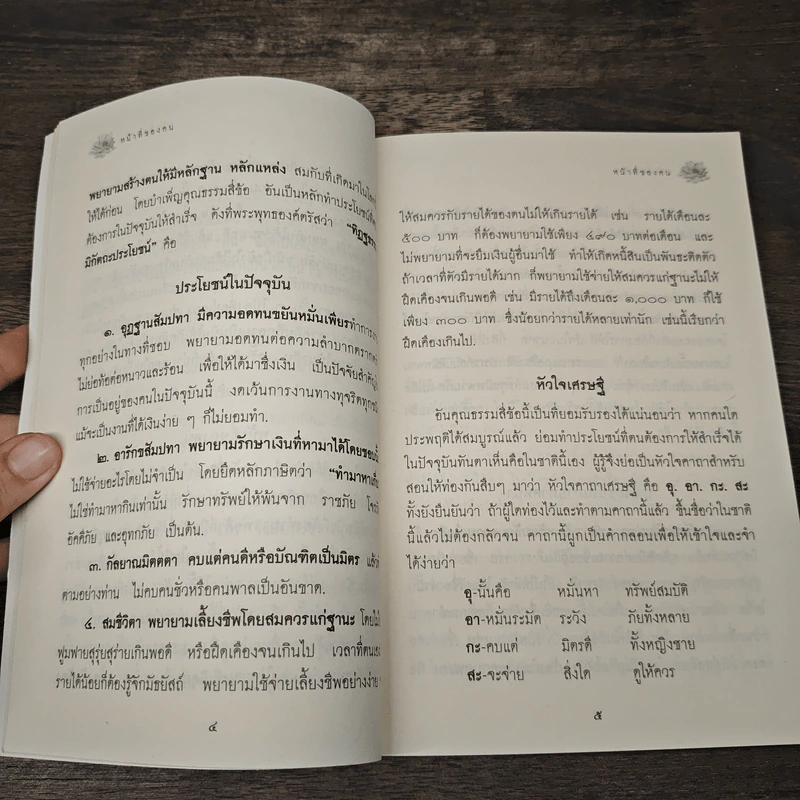 หน้าที่ของคน
พยายามสร้างตนให้มีหลักฐาน หลักแหล่ง สมกับที่เกิดมาใน
ให้ได้ก่อน โดยบำเพ็ญคุณธรรมสี่ข้อ อันเป็นหลักทำประโยชน์
ต้องการในปัจจุบันให้สำเร็จ ดังที่พระพุทธองค์ตรัสว่า
มิกัตถะประโยชน์" คือ
ประโยชน์ในปัจจุบัน
๑. อุฏฐานสัมปทา มีความอดทนขยันหมั่นเพียรทำการ
ทุกอย่างในทางที่ชอบ พยายามอดทนต่อความลำบากตรากตรำ
ไม่ย่อท้อต่อหนาวและร้อน เพื่อให้ได้มาซึ่งเงิน เป็นปัจจัยสำคัญ
การเป็นอยู่ของคนในปัจจุบันนี้ งดเว้นการงานทางทุจริตทุก
แม้จะเป็นงานที่ได้เงินง่าย ๆ ก็ไม่ยอมทำ.
๒. อารักขสัมปทา พยายามรักษาเงินที่หามาได้โดยชอบ
ไม่ใช้จ่ายอะไรโดยไม่จำเป็น โดยยึดหลักภาษิตว่า "ทำมาหาเก็บ
ไม่ใช่ทำมาหากินเท่านั้น รักษาทรัพย์ให้พ้นจาก ราชภัย โจรภัย
อัคคีภัย และอุทกภัย เป็นต้น.
๓. กัลยาณมิตตตา คบแต่คนดีหรือบัณฑิตเป็นมิตร แล้ว
ตามอย่างท่าน ไม่คบคนชั่วหรือคนพาลเป็นอันขาด.
๔. สมชีวิตา พยายามเลี้ยงชีพโดยสมควรแก่ฐานะ โดยไม่
ฟูมฟายสุรุ่ยสุร่ายเกินพอดี หรือฝืดเคืองจนเกินไป เวลาที่ตน
รายได้น้อยก็ต้องรู้จักมัธยัสถ์ พยายามใช้จ่ายเลี้ยงชีพอย่างง่าย
๔
หน้าที่ของคน
ให้สมควรกับรายได้ของตนไม่ให้เกินรายได้ เช่น รายได้เดือนละ
๕๐๐ บาท ก็ต้องพยายามใช้เพียง ๔๙๐ บาทต่อเดือน และ
ไม่พยายามที่จะยืมเงินผู้อื่นมาใช้ ทำให้เกิดหนี้สินเป็นพันธะติดตัว
ถ้าเวลาที่ตัวมีรายได้มาก ก็พยายามใช้จ่ายให้สมควรแก่ฐานะไม่ให้
ฝืดเคืองจนเกินพอดี เช่น มีรายได้ถึงเดือนละ ๑,๐๐๐ บาท ก็ใช้
เพียง ๓๐๐ บาท ซึ่งน้อยกว่ารายได้หลายเท่านัก เช่นนี้เรียกว่า
ฝืดเคืองเกินไป.
หัวใจเศรษฐี
อันคุณธรรมสี่ข้อนี้เป็นที่ยอมรับรองได้แน่นอนว่า หากคนใด
ประพฤติได้สมบูรณ์แล้ว ย่อมทำประโยชน์ที่ตนต้องการให้สำเร็จได้
ในปัจจุบันทันตาเห็นคือในชาตินี้เอง ผู้รู้จึงย่อเป็นหัวใจคาถาสำหรับ
สอนให้ท่องกันสืบๆ มาว่า หัวใจคาถาเศรษฐี คือ อุ. อา. กะ. สะ
ทั้งยังยืนยันว่า ถ้าผู้ใดท่องไว้และทำตามคาถานี้แล้ว ขึ้นชื่อว่าในชาติ
นี้แล้วไม่ต้องกลัวจน คาถานี้ผูกเป็นคำกลอนเพื่อให้เข้าใจและจำ
ได้ง่ายว่า
อุ-นั้นคือ หมั่นหา ทรัพย์สมบัติ
อา-หมั่นระมัด ระวัง ภัยทั้งหลาย
กะ-คบแต่ มิตรดี ทั้งหญิงชาย
สะ-จะจ่าย สิ่งใด ดูให้ควร
๕